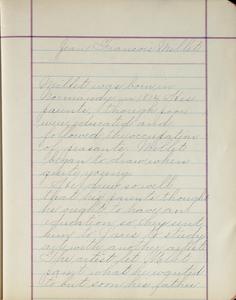 Jean Francois Millet
Millet was born in
Normandy in 1814 His
parents, though poor
were educated and
followed the occupation
of peasants. Millet
began to draw when
quite young.
He drew so well
that his parents thought
he ought to have an
education so they sent
him to study
art with another artist
This artist let Millet
paint what he wanted
to but soon his father